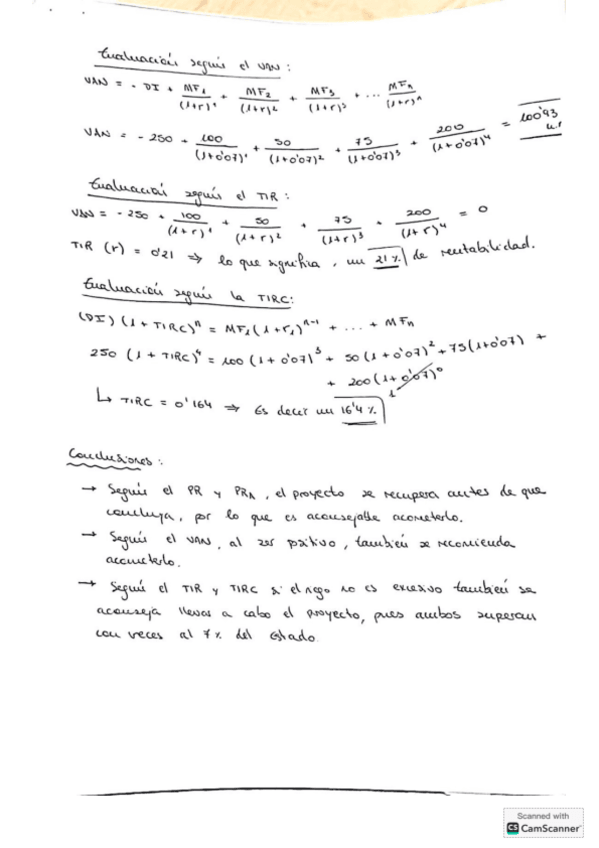 Evaluación según el VAN:
VAN = - DI + MF₁/(1+r)¹ + MF₂/(1+r)² + MF₃/(1+r)³ + ... MFₙ/(1+r)ⁿ
VAN = - 250 + 100/(1+0'07)¹ + 50/(1+0'07)² + 75/(1+0'07)³ + 200/(1+0'07)⁴ = 100'93
Evaluación según el TIR:
VAN = - 250 + 100/(1+r)¹ + 50/(1+r)² + 75/(1+r)³ + 200/(1+r)⁴ = 0
TIR (r) = 0'21 ⇒ lo que significa, un 21% de rentabilidad.
Evaluación según la TIRC:
(DI) (1 + TIRC)ⁿ = MF₁(1+r₁)ⁿ⁻¹ + ... + MFₙ
250 (1 + TIRC)⁴ = 100(1+0'07)³ + 50(1+0'07)² + 75(1+0'07) +
+ 200(1+0'07)⁰
1
↳ TIRC = 0'164 ⇒ Es decir un 16'4%
Conclusiones:
→ Según el PR y PRA, el proyecto se recupera antes de que
concluya, por lo que es aconsejable acometerlo.
→ Según el VAN, al ser positivo, también se recomienda
acometerlo.
→ Según el TIR y TIRC si el no es excesivo también se
aconseja llevar a cabo el proyecto, pues ambos superan
con veces al 7% del Estado.
Scanned with
CS CamScanner